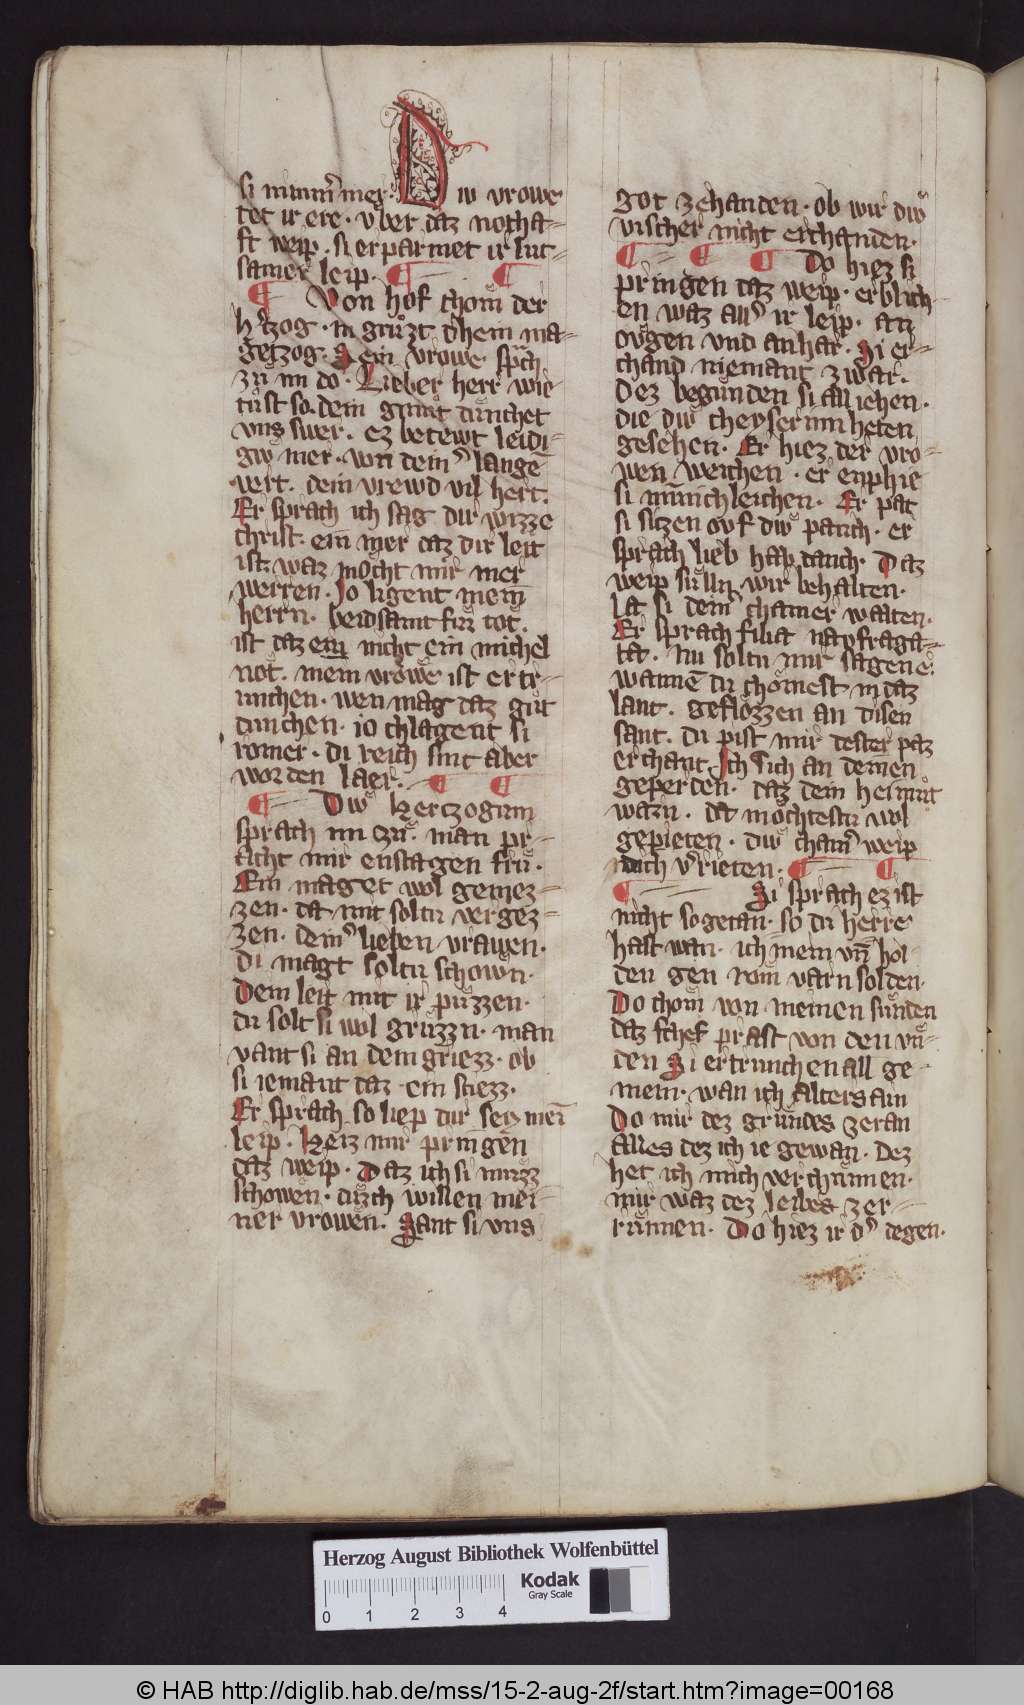 si nimm̄ mer. Diw vrowe
tet ir ere. vber daz notha-
ft weip. si erparmet ir lut-
samer leip.
Von hof chom̄ der
h'tzog. in gruͦzt d'hein ma-
getzog. Sein vrowe sprach
zuͦ im do. Lieber herr wie
tuͦst so. dein gmuͤt duͤnchet
vns swer. ez betewt leidi-
giv mer. von dein' lange
vert. dein vrewd vil hert.
Er sprach ich sag dir wizze
christ. ein mer daz dir leit
ist. waz moͤcht mir mer
werren. Jo ligent mein
herrn. beidsamt fuͤr tot.
ist daz ein nicht ein michel
not. mein vrowe ist ertr-
unchen. wen mag daz guͦt
dunchen. io chlagent si
romer. di reich sint aber
worden laer.
Diw herczogein
sprach im czuͦ. man pr-
acht mir enstagen fruͦ.
Ein maget wol gemez-
zen. da mit soltu vergez-
zen. dein' lieben vrawen.
Di magt soltu schown.
Dem leit mit ir puͤzzen.
du solt si wol gruͤzzn. man
vant si an dem griezz. ob
si iemant daz ein stiezz.
Er sprach so liep dir sey mein
leip. Heiz mir pringen
daz weip. Daz ich si muͤzz
schowen. durch willen mei-
ner vrowen. Sant si vns
got zehanden. ob wir diw
vischer nicht erchanden.
Do hiez si
pringen daz weip. erblich-
en waz all' ir leip. an
ougen vnd an har. Si er-
chand niemant zwar.
Dez begunden si all iehen.
die diw cheyserinn heten
gesehen. Er hiez der vro-
wen weichen. er enphie
si minichleichen. Er pat
si sitzen ouf diw panch. er
sprach lieb hab danch. Daz
weip suͤlln wir behalten.
lat si dein' chamer walten.
Er sprach filia naufraga-
ta. Nu soltu mir sagen e.
wannē du choͤmest in daz
lant. gefloͤzzen an disen
sant. du pist mir dester paz
erchant. Ich sich an deinen
geperden. daz dein heimuͦt
wazn. da moͤchtestu wol
gepieten. diw cham' weip
dich v'rieten.
Si sprach ez ist
nicht so getan. so du herre
hast wan. ich mein vn̄ hol-
den gen rom varn solden.
Do chom̄ von meinen suͤnden
daz schef prast von den vn-
den Si ertrunchen all ge-
mein. wan ich alters ain
Do mir dez grundes zeran
alles dez ich ie gewan. Dez
het ich mich verchunnen.
mir waz dez leibes zer-
runnen. Do hiez ir d' degen.
Herzog August Bibliothek Wolfenbüttel
Kodak
Gray Scale
0 1 2 3 4
© HAB http://diglib.hab.de/mss/15-2-aug-2f/start.htm?image=00168